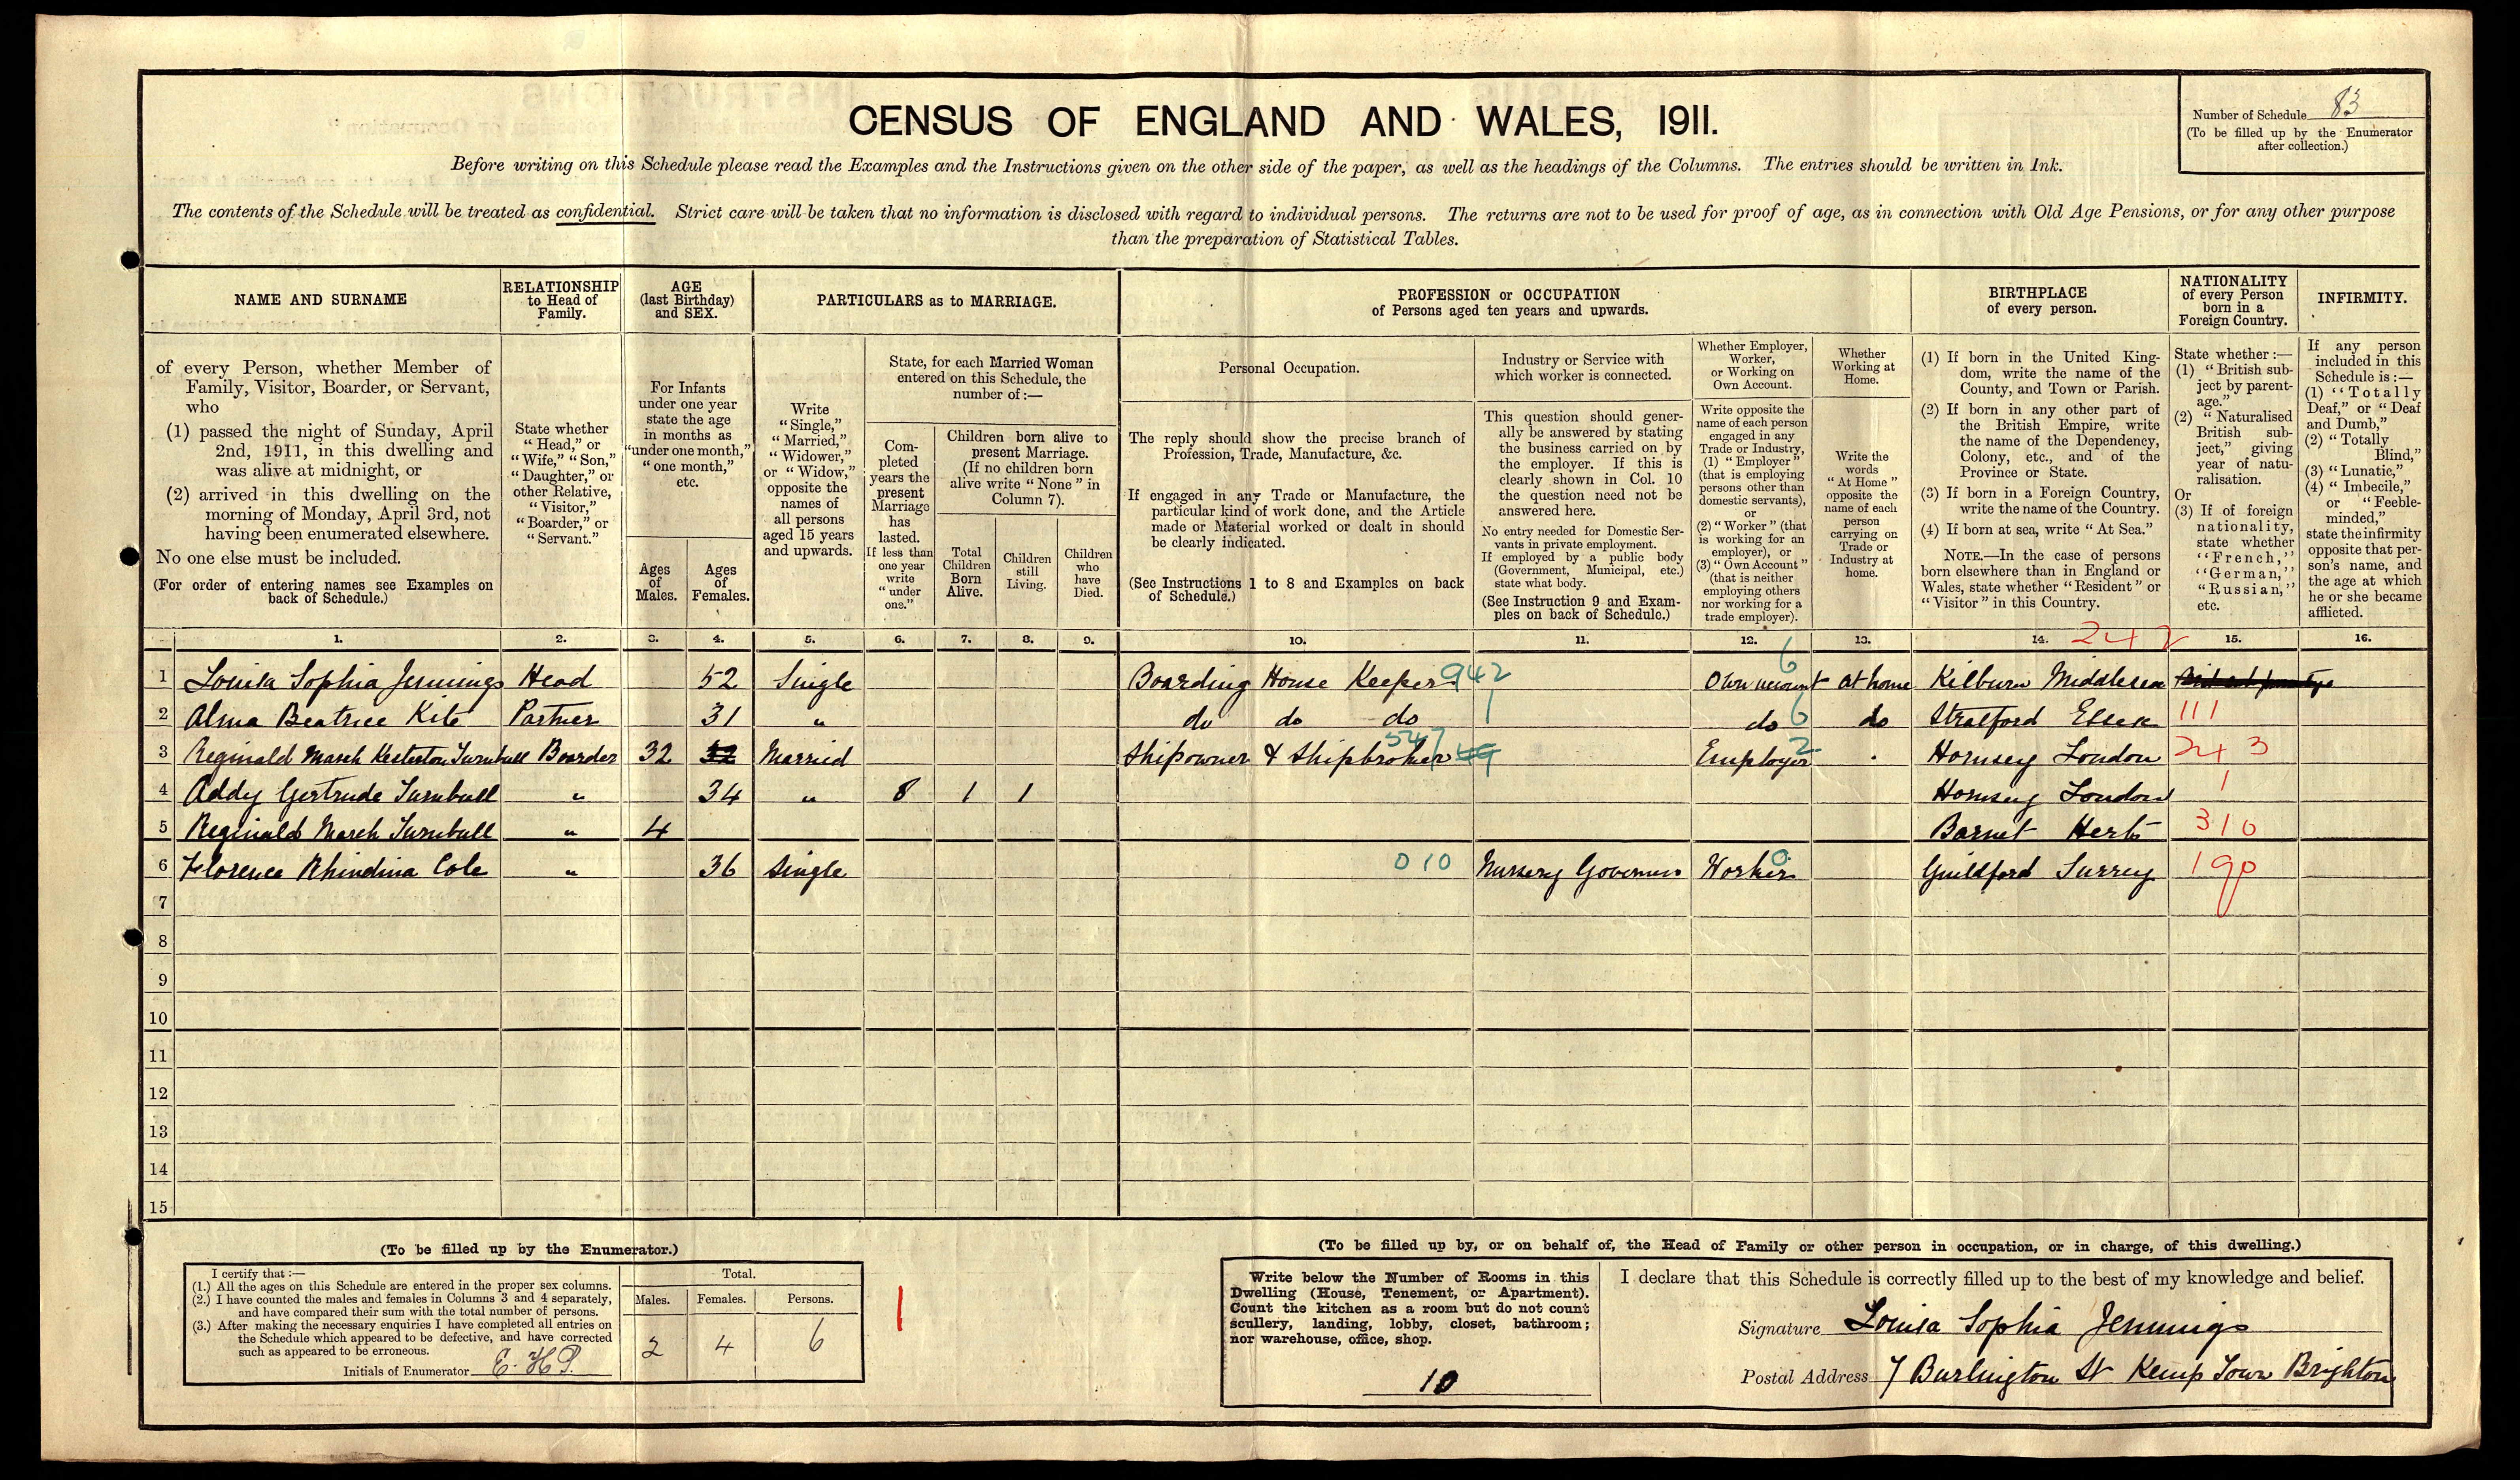 CENSUS OF ENGLAND AND WALES, 1911.
Number of Schedule 83
(To be filled up by the Enumerator
after collection.)
Before writing on this Schedule please read the Examples and the Instructions given on the other side of the paper, as well as the headings of the Columns. The entries should be written in Ink.
The contents of the Schedule will be treated as confidential. Strict care will be taken that no information is disclosed with regard to individual persons. The returns are not to be used for proof of age, as in connection with Old Age Pensions, or for any other purpose
than the preparation of Statistical Tables.
NAME AND SURNAME
of every Person, whether Member of
Family, Visitor, Boarder, or Servant,
who
(1) passed the night of Sunday, April
2nd, 1911, in this dwelling and
was alive at midnight, or
(2) arrived in this dwelling on the
morning of Monday, April 3rd, not
having been enumerated elsewhere.
No one else must be included.
(For order of entering names see Examples on
back of Schedule.)
RELATIONSHIP
to Head of
Family.
State whether
"Head," or
"Wife," "Son,"
"Daughter," or
other Relative,
"Visitor,"
"Boarder," or
"Servant."
AGE
(last Birthday)
and SEX.
For Infants
under one year
state the age
in months as
"under one month,"
"one month,"
etc.
Ages
of
Males.
Ages
of
Females.
PARTICULARS as to MARRIAGE.
Write
"Single,"
"Married,"
"Widower,"
or "Widow,"
opposite the
names of
all persons
aged 15 years
and upwards.
State, for each Married Woman
entered on this Schedule, the
number of:—
Com-
pleted
years the
present
Marriage
has
lasted.
If less than
one year
write
"under
one."
Children born alive to
present Marriage.
(If no children born
alive write "None" in
Column 7).
Total
Children
Born
Alive.
Children
still
Living.
Children
who
have
Died.
PROFESSION or OCCUPATION
of Persons aged ten years and upwards.
Personal Occupation.
The reply should show the precise branch of
Profession, Trade, Manufacture, &c.
If engaged in any Trade or Manufacture, the
particular kind of work done, and the Article
made or Material worked or dealt in should
be clearly indicated.
(See Instructions 1 to 8 and Examples on back
of Schedule.)
Industry or Service with
which worker is connected.
This question should gener-
ally be answered by stating
the business carried on by
the employer. If this is
clearly shown in Col. 10
the question need not be
answered here.
No entry needed for Domestic Ser-
vants in private employment.
If employed by a public body
(Government, Municipal, etc.)
state what body.
(See Instruction 9 and Exam-
ples on back of Schedule.)
Whether Employer,
Worker,
or Working on
Own Account.
Write opposite the
name of each person
engaged in any
Trade or Industry,
(1) "Employer"
(that is employing
persons other than
domestic servants),
or
(2) "Worker" (that
is working for an
employer), or
(3) "Own Account"
(that is neither
employing others
nor working for a
trade employer).
Whether
Working at
Home.
Write the
words
"At Home"
opposite the
name of each
person
carrying on
Trade or
Industry at
home.
BIRTHPLACE
of every person.
(1) If born in the United King-
dom, write the name of the
County, and Town or Parish.
(2) If born in any other part of
the British Empire, write
the name of the Dependency,
Colony, etc., and of the
Province or State.
(3) If born in a Foreign Country,
write the name of the Country.
(4) If born at sea, write "At Sea."
NOTE.—In the case of persons
born elsewhere than in England or
Wales, state whether "Resident" or
"Visitor" in this Country.
NATIONALITY
of every Person
born in a
Foreign Country.
State whether:—
(1) "British sub-
ject by parent-
age."
(2) "Naturalised
British sub-
ject," giving
year of natu-
ralisation.
Or
(3) If of foreign
nationality,
state whether
"French,"
"German,"
"Russian,"
etc.
INFIRMITY.
If any person
included in this
Schedule is:—
(1) "Totally
Deaf," or "Deaf
and Dumb,"
(2) "Totally
Blind,"
(3) "Lunatic,"
(4) "Imbecile,"
or "Feeble-
minded,"
state the infirmity
opposite that per-
son's name, and
the age at which
he or she became
afflicted.
1. 2. 3. 4. 5. 6. 7. 8. 9. 10. 11. 12. 13. 14. 242 15. 16.
1 Louisa Sophia Jennings Head 52 Single Boarding House Keeper 942 Own account 6 at home Kilburn Middlesex
2 Alma Beatrice Kite Partner 31 " do do do 1 do 6 do Stratford Essex 111
3 Reginald Marsh Kesterton Turnbull Boarder 32 32 Married Shipowner & Shipbroker 547 49 Employer 2 Hornsey London 243
4 Addy Gertrude Turnbull " 34 " 8 1 1 Hornsey London 1
5 Reginald Marsh Turnbull " 4 Barnet Herts 310
6 Florence Rhindina Cole " 36 Single 010 Nursery Governess Worker 0 Guildford Surrey 190
7
8
9
10
11
12
13
14
15
(To be filled up by the Enumerator.)
I certify that:—
(1.) All the ages on this Schedule are entered in the proper sex columns.
(2.) I have counted the males and females in Columns 3 and 4 separately,
and have compared their sum with the total number of persons.
(3.) After making the necessary enquiries I have completed all entries on
the Schedule which appeared to be defective, and have corrected
such as appeared to be erroneous.
Initials of Enumerator E. H P.
Total.
Males. Females. Persons.
2 4 6
1
(To be filled up by, or on behalf of, the Head of Family or other person in occupation, or in charge, of this dwelling.)
Write below the Number of Rooms in this
Dwelling (House, Tenement, or Apartment).
Count the kitchen as a room but do not count
scullery, landing, lobby, closet, bathroom;
nor warehouse, office, shop.
10
I declare that this Schedule is correctly filled up to the best of my knowledge and belief.
Signature Louisa Sophia Jennings
Postal Address 7 Burlington St Kemp Town Brighton